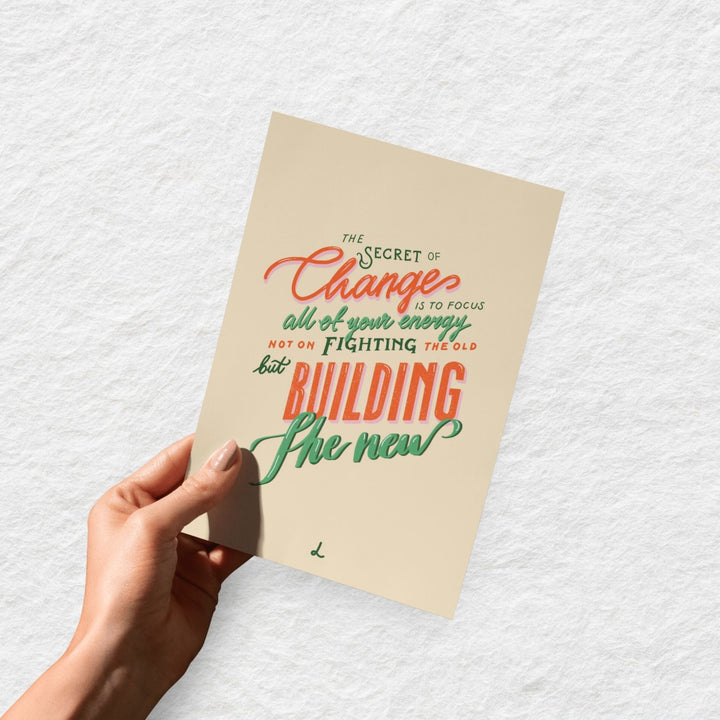 THE
SECRET OF
Change
IS TO FOCUS
all of your energy
NOT ON FIGHTING THE OLD
but BUILDING
The new
L